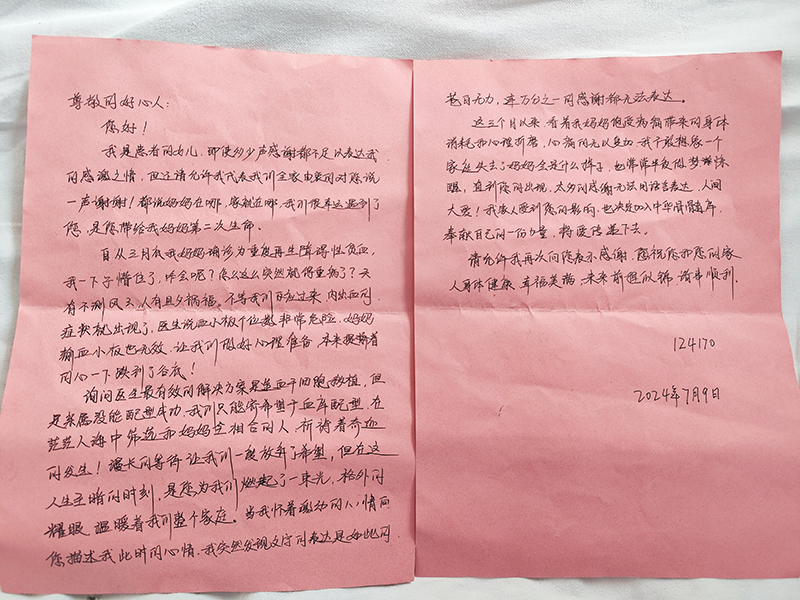 尊敬的好心人：
您好！
我是患者的女儿，即使多少声感谢都不足以表达我
的感激之情，但还请允许我代表我们全家由衷的对您说
一声谢谢！都说妈妈在哪，家就在哪，我们很幸运遇到了
您，是您带给我妈妈第二次生命。
自从三月份我妈妈确诊为重度再生障碍性贫血，
我一下子懵住了，咋会呢？怎么这么突然就得重病了？天
有不测风云，人有旦夕祸福。不等我们反应过来，内出血的
症状就出现了，医生说血小板个位数非常危险，妈妈
输血小板也无效，让我们做好心理准备，本来提着
的心一下跌到了谷底！
询问医生最有效的解决方案是造血干细胞移植，但
是亲属没能配型成功，我们只能寄希望于血库配型，在
茫茫人海中筛选和妈妈全相合的人，祈祷着奇迹
的发生！漫长的等待让我们一度放弃了希望，但在这
人生至暗的时刻，是您为我们燃起了一束光，格外的
耀眼，温暖着我们整个家庭。当我怀着激动的心情向
您描述我此时的心情，我突然发现文字的表达是如此的
苍白无力，连万分之一的感谢都无法表达。
这三个月以来，看着我妈妈饱受病痛带来的身体
消耗和心理折磨，心痛的无以复加，我不敢想象一个
家庭失去了妈妈会是什么样子，也常常半夜做梦惊
醒，直到您的出现，太多的感谢无法用语言表达，人间
大爱！我家人受到您的影响，也决定加入中华骨髓库，
奉献自己的一份力量，将爱传递下去。
请允许我再次向您表示感谢，愿祝您和您的家
人身体健康，幸福美满，未来前程似锦，诸事顺利。
124170
2024年7月9日